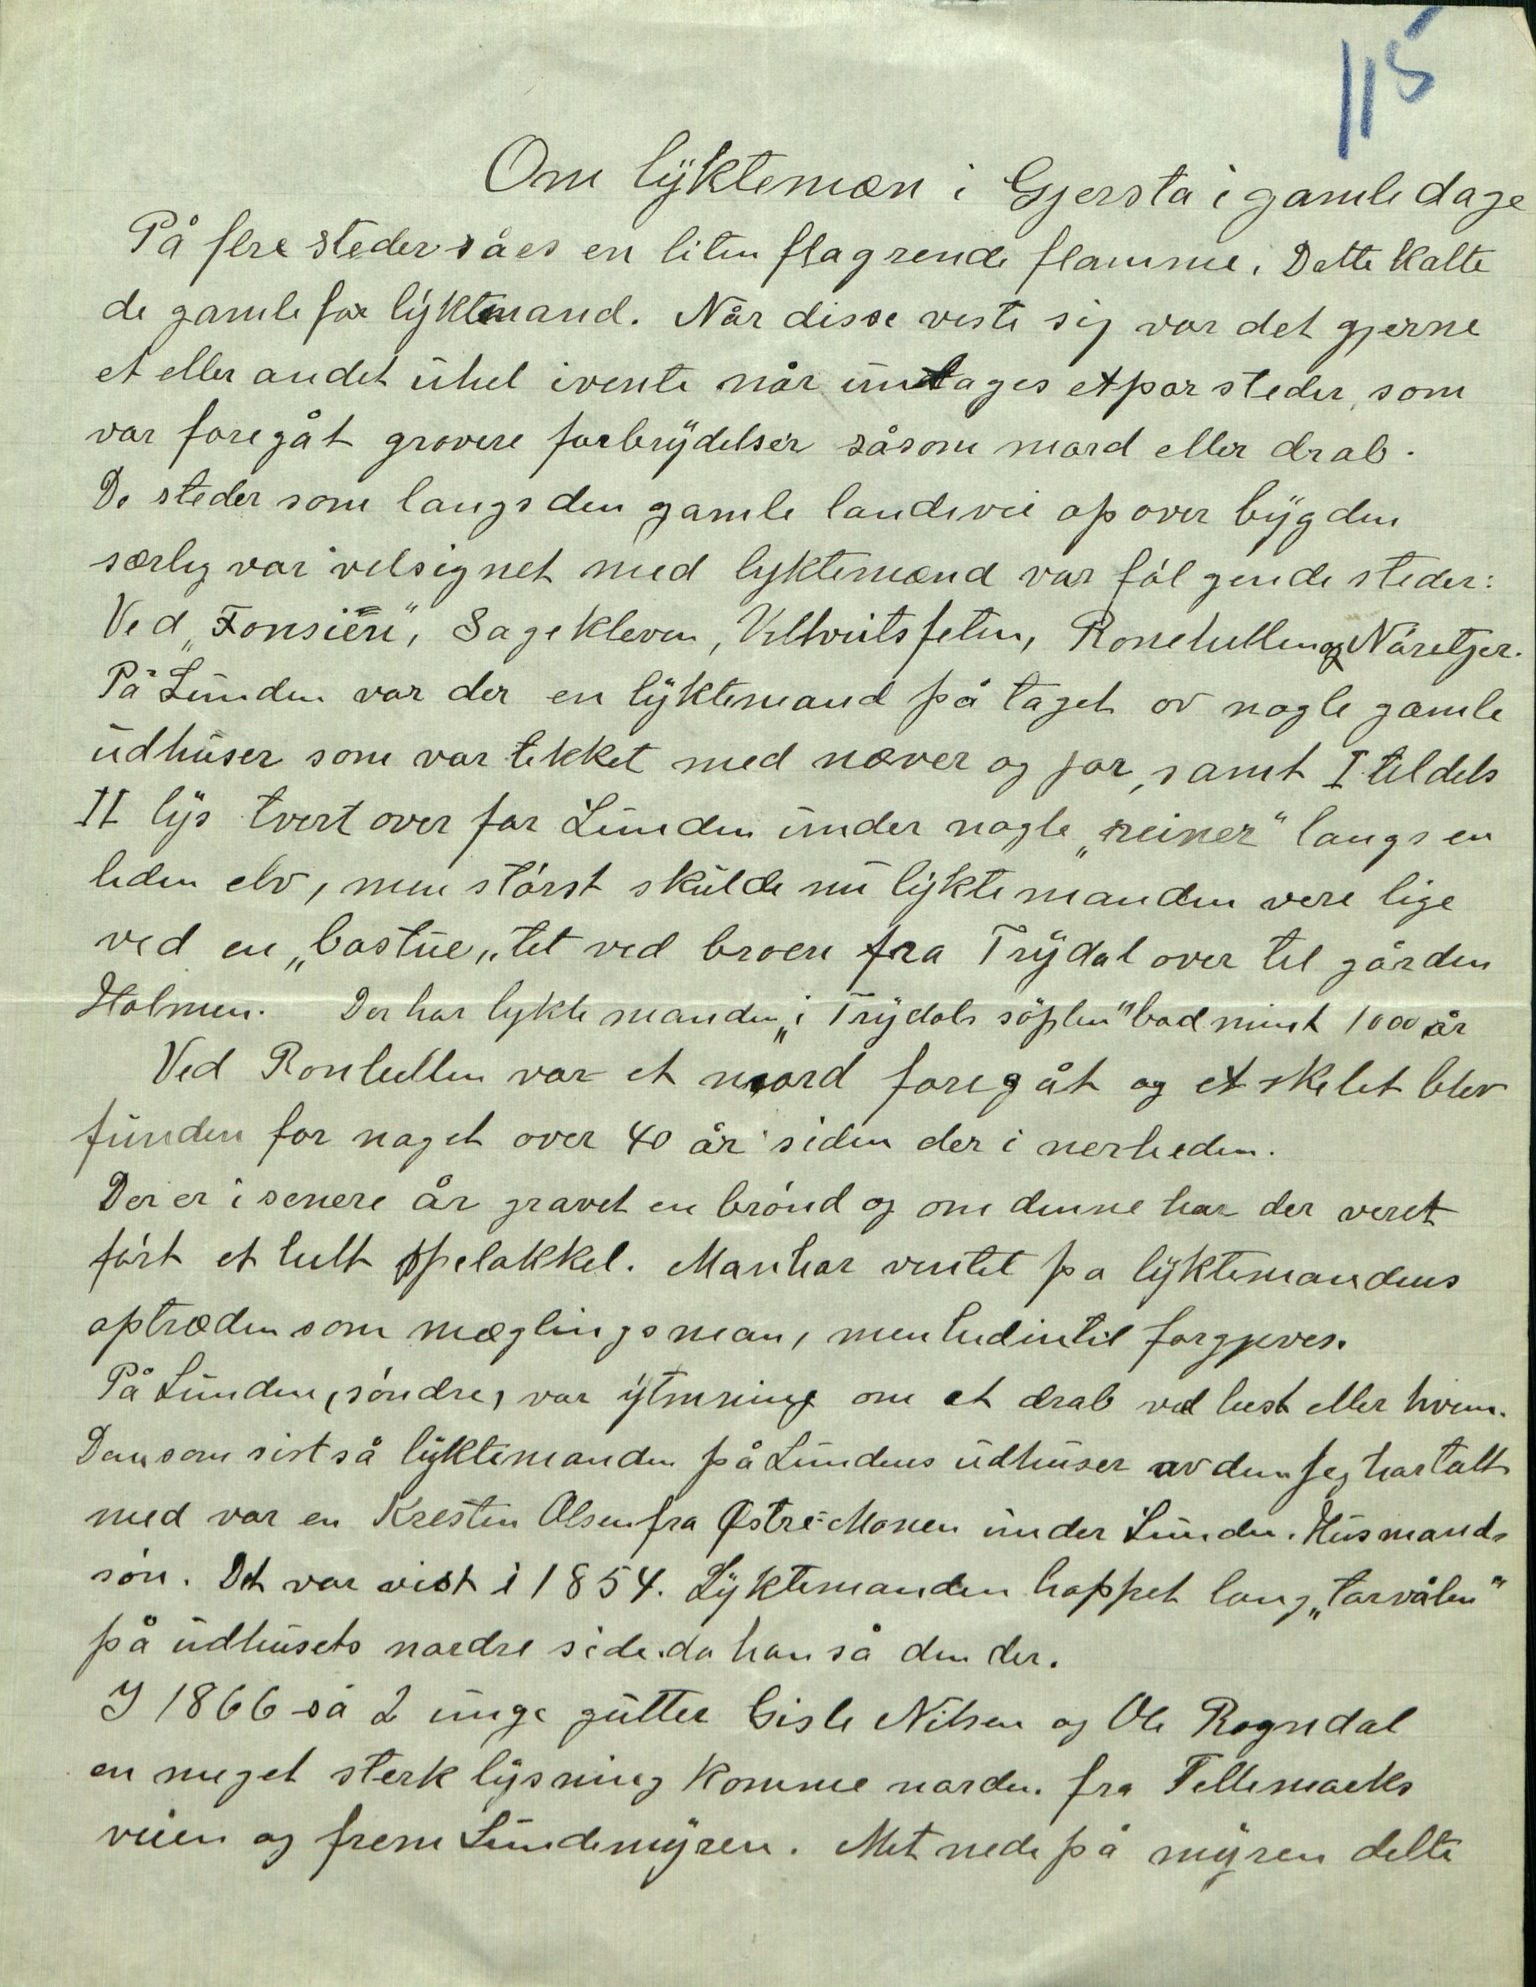 115
Om lyktemæn i Gjersta i gamle dage
På flre steder såes en liten flagrende flamme. Dette kalte
de gamle for lyktemand. Når disse viste sig var det gjerne
et eller andet uhel ivente når undtages et par steder, som
var foregåt grovere forbrydelser såsom mord eller drab.
De steder som langs den gamle landevei opover bygden
særlig var velsignet med lyktemænd var følgende steder:
Ved "Fonsien", Sagekleven, Ronehullen og Nåretjer.
På Lunden var der en lyktemand på taget ov nogle gamle
udhuser som var tekket med næver og jor, samt I tildels
II lys tvert over for Lunden under nogle „reiner“ langs en
liden elv, men størst skulde nu lyktemanden vere lige
ved en „bastue„ tet ved broen fra Trydal over til gården
Holmen. Der har lyktemanden „i Trydals söplen“ bod minst 1000 år
Ved Ronhullen var et mord foregåt og et skelet blev
funden for noget over 40 år siden der i nerheden.
Der er i senere år gravet en brønd og om denne har der veret
ført et helt spelakkel. Man har ventet pa lyktemandens
optræden som mæglingsman, men hidintil forgjeves.
På Lunden, søndre, var ymning om et drab ved hest eller hvem.
Den som sist så lyktemanden på Lundens udhuser av dem jeg har talt
med var en Kresten Olsen fra Østre-Monen under Lunden. Husmands
søn. Det var vist i 1854. Lyktemanden hoppet lang „torvålen“
på udhusets nordre side da han så den der.
I 1866 så 2 unge gutter Gisle Nilsen og Ole Rogndal
en meget sterk lysning komme norden fra Tellemarks
veien og frem Lundemyren. Met nede på myren delte